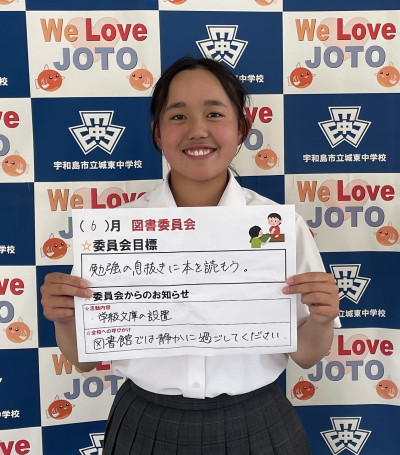 We Love
JOTO
We Love
JOTO
宇和島市立城東中学校
宇和島市立城東中学校
We Love
JOTO
We Love
JOTO
We Love
JOTO
We Love
JOTO
( 6 )月 図書委員会
☆委員会目標
勉強の息抜きに本を読もう。
委員会からのお知らせ
☆活動内容
・学級文庫の設置
☆全校への呼びかけ
図書館では静かに過ごしてください。